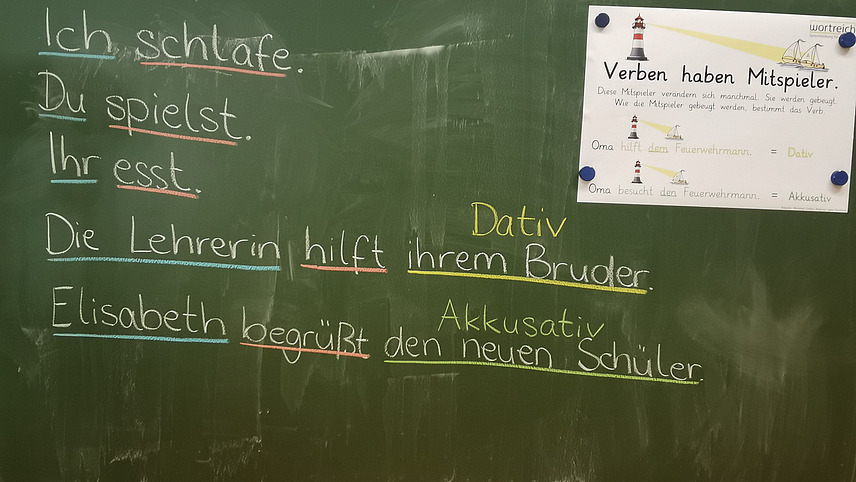 Ich schlafe.
Du spielst.
Ihr esst.
Dativ
Die Lehrerin hilft ihrem Bruder.
Akkusativ
Elisabeth begrüßt den neuen Schüler.
wortreich
Verben haben Mitspieler.
Diese Mitspieler verändern sich manchmal. Sie werden gebeugt.
Wie die Mitspieler gebeugt werden, bestimmt das Verb.
Oma hilft dem Feuerwehrmann. = Dativ
Oma besucht den Feuerwehrmann. = Akkusativ